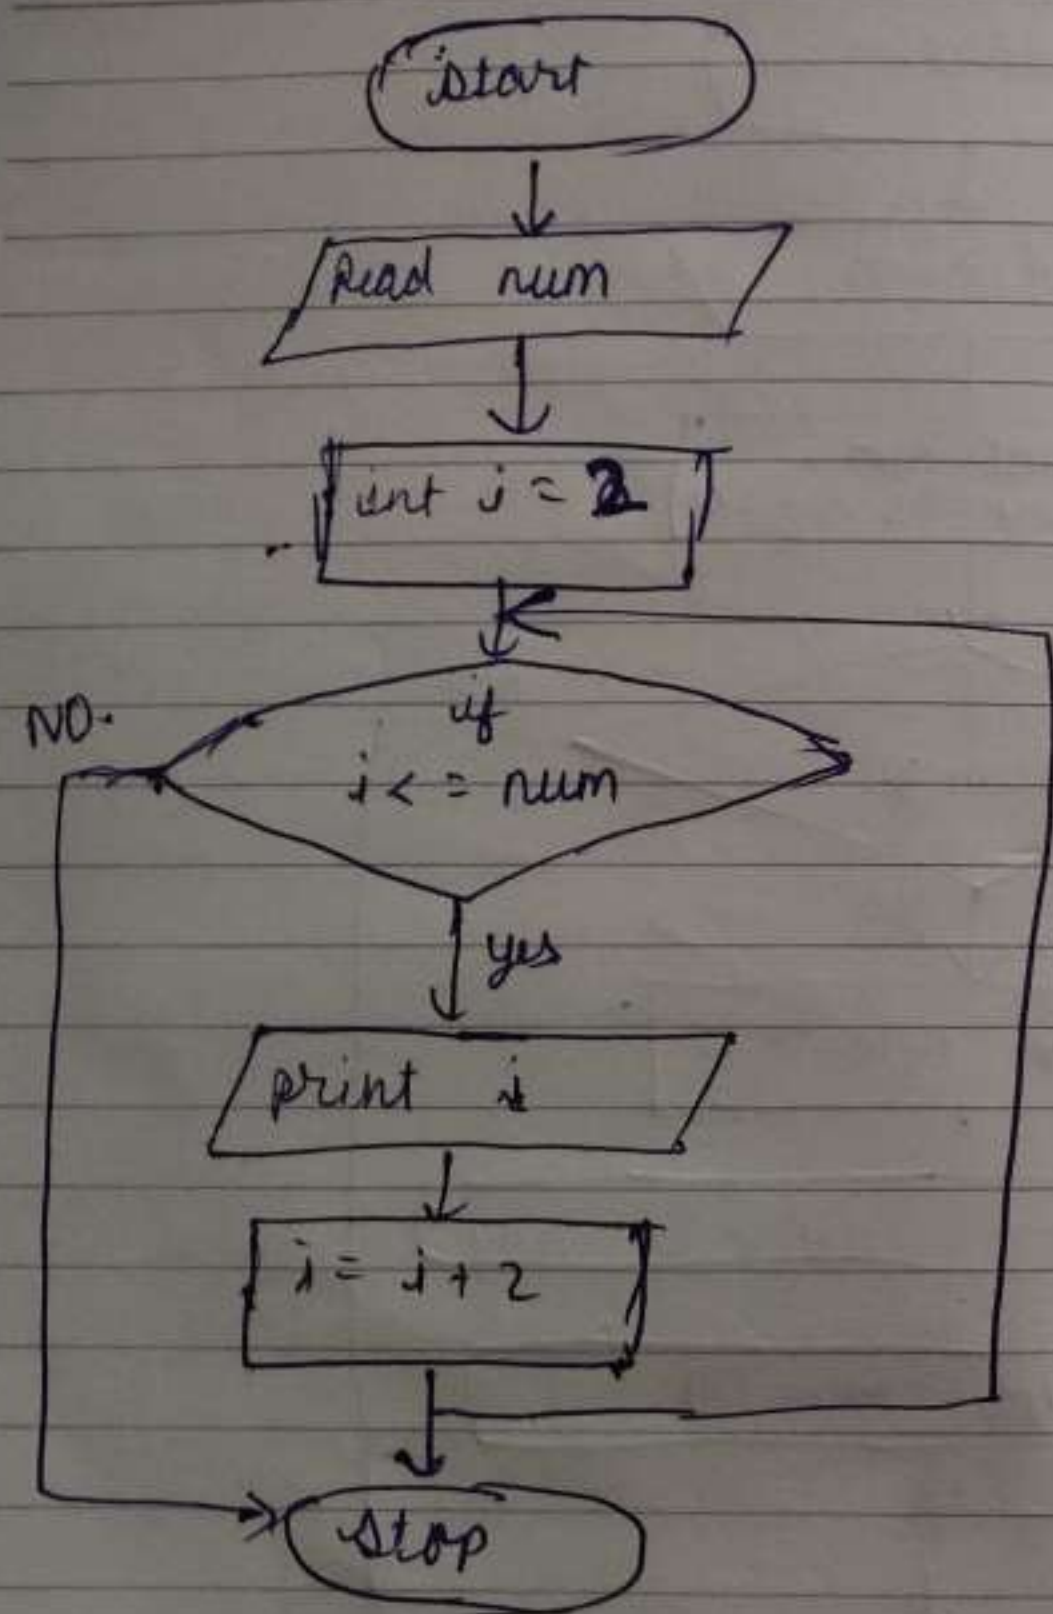 start
Read num
int i = 2
if
NO.
i < = num
yes
print i
i = i + 2
stop